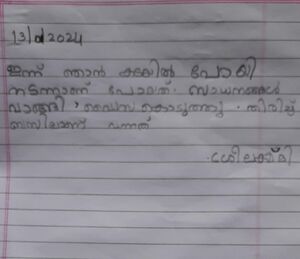 13/d2024
ഇന്ന് ഞാൻ കടയിൽ പോയി
നടന്നാണ് പോയത്. സാധനങ്ങൾ
വാങ്ങി, പൈസ കൊടുത്തു. തിരിച്ച്
ബസിലാണ് വന്നത്